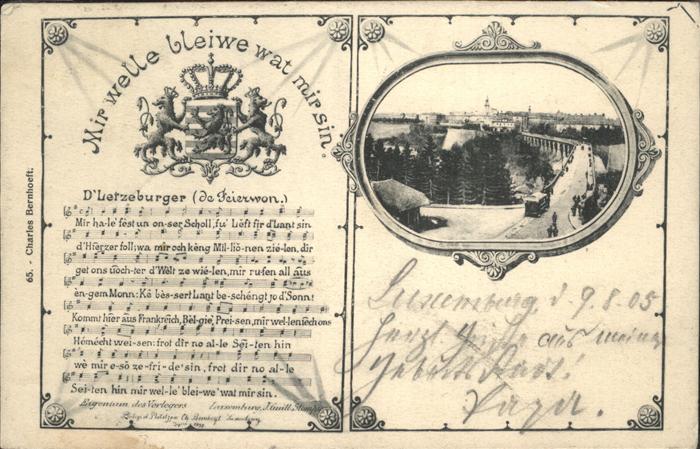 65. - Charles Bernhoeft.
Mir welle bleiwe wat mir sin.
D'Letzeburger (de Feierwon.)
Mir ha-le' fest un on-ser Scholl, fu' Löft fir d'Lant sin
d'Hierzer foll; wa mir och kéng Mil-liō-nen zie-len, dir
get ons üöch-ter d'Welt ze wie-len, mir rufen all aus
èn-gem Monn: Kē bès-sert Lant be-schéngt jo d'Sonn!
Kommt hier aus Frankreich, Bel-gie, Prei-sen, mir wel-len iech ons
Hémécht wei-sen: frot dir no al-le Sei-ten hin
we' mir e-sō ze-fri-de' sin, frot dir no al-le
Sei-ten hin mir wel-le' blei-we' wat mir sin.
Eigentum des Verlegers Luxemburg,
Luxemburg d. 9.8.05
Herzl. Grüße aus meiner
Geburtsstadt!
Papa.